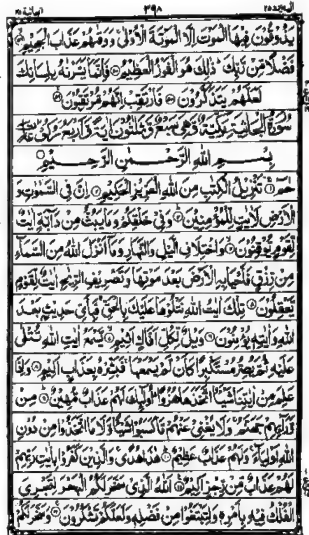 اليه يرد ٢٥ ٣٩٨ الجاثية ٤٥
يَذُوقُونَ فِيهَا الْمَوْتَ اِلَّا الْمَوْتَةَ الْاُوْلٰى وَوَقٰىهُمْ عَذَابَ الْجَحِيْمِ
فَضْلًا مِّنْ رَّبِّكَ ذٰلِكَ هُوَ الْفَوْزُ الْعَظِيْمُ فَاِنَّمَا يَسَّرْنٰهُ بِلِسَانِكَ
لَعَلَّهُمْ يَتَذَكَّرُوْنَ فَارْتَقِبْ اِنَّهُمْ مُّرْتَقِبُوْنَ
سُوْرَةُ الْجَاثِيَةِ مَكِّيَّةٌ وَّهِىَ سَبْعٌ وَّثَلٰثُوْنَ اٰيَةً وَّاَرْبَعُ رُكُوْعَاتٍ
بِسْمِ اللهِ الرَّحْمٰنِ الرَّحِيْمِ
حٰمٓ تَنْزِيْلُ الْكِتٰبِ مِنَ اللهِ الْعَزِيْزِ الْحَكِيْمِ اِنَّ فِى السَّمٰوٰتِ وَ
الْاَرْضِ لَاٰيٰتٍ لِّلْمُؤْمِنِيْنَ وَفِىْ خَلْقِكُمْ وَمَا يَبُثُّ مِنْ دَآبَّةٍ اٰيٰتٌ
لِّقَوْمٍ يُّوْقِنُوْنَ وَاخْتِلَافِ الَّيْلِ وَالنَّهَارِ وَمَآ اَنْزَلَ اللهُ مِنَ السَّمَآءِ
مِنْ رِّزْقٍ فَاَحْيَا بِهِ الْاَرْضَ بَعْدَ مَوْتِهَا وَتَصْرِيْفِ الرِّيٰحِ اٰيٰتٌ لِّقَوْمٍ
يَّعْقِلُوْنَ تِلْكَ اٰيٰتُ اللهِ نَتْلُوْهَا عَلَيْكَ بِالْحَقِّ فَبِاَىِّ حَدِيْثٍۭ بَعْدَ
اللهِ وَاٰيٰتِهٖ يُؤْمِنُوْنَ وَيْلٌ لِّكُلِّ اَفَّاكٍ اَثِيْمٍ يَّسْمَعُ اٰيٰتِ اللهِ تُتْلٰى
عَلَيْهِ ثُمَّ يُصِرُّ مُسْتَكْبِرًا كَاَنْ لَّمْ يَسْمَعْهَا فَبَشِّرْهُ بِعَذَابٍ اَلِيْمٍ وَاِذَا
عَلِمَ مِنْ اٰيٰتِنَا شَيْـًٔا اتَّخَذَهَا هُزُوًا اُولٰٓئِكَ لَهُمْ عَذَابٌ مُّهِيْنٌ مِنْ
وَّرَآئِهِمْ جَهَنَّمُ وَلَا يُغْنِىْ عَنْهُمْ مَّا كَسَبُوْا شَيْـًٔا وَّلَا مَا اتَّخَذُوْا مِنْ دُوْنِ
اللهِ اَوْلِيَآءَ وَلَهُمْ عَذَابٌ عَظِيْمٌ هٰذَا هُدًى وَالَّذِيْنَ كَفَرُوْا بِاٰيٰتِ رَبِّهِمْ
لَهُمْ عَذَابٌ مِّنْ رِّجْزٍ اَلِيْمٌ اَللهُ الَّذِىْ سَخَّرَ لَكُمُ الْبَحْرَ لِتَجْرِىَ
الْفُلْكُ فِيْهِ بِاَمْرِهٖ وَلِتَبْتَغُوْا مِنْ فَضْلِهٖ وَلَعَلَّكُمْ تَشْكُرُوْنَ وَسَخَّرَ لَكُمْ